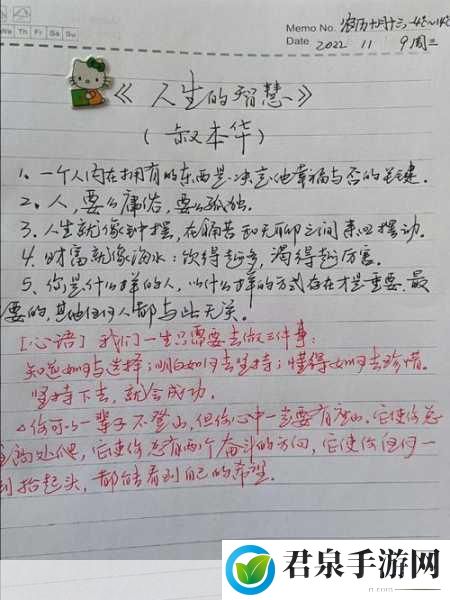 We Th Fr Sa Su
Memo No. 农历十月十六
Date 2022 11 9周三
《人生的智慧、》
(叔本华)
1、一个人内在拥有的东西是决定他幸福与否的关键.
2、人,要么庸俗,要么孤独.
3、人生就像钟摆,在痛苦和无聊之间来回摆动.
4、财富就像海水:饮得越多,渴得越厉害.
5、你是什么样的人,以什么样的方式存在才是重要.最
要的,其他任何人都与此无关.
[心语]我们一生只需要去做三件事:
知道如何去选择;明白如何去坚持;懂得如何去珍惜.
坚持下去,就会成功.
你可以一辈子不登山,但你心中一定要有座山.它使你总
往高处爬,它使你总有个奋斗的方向,它使你任何一
刻抬起头,都能看到自己的希望.
君泉手游网